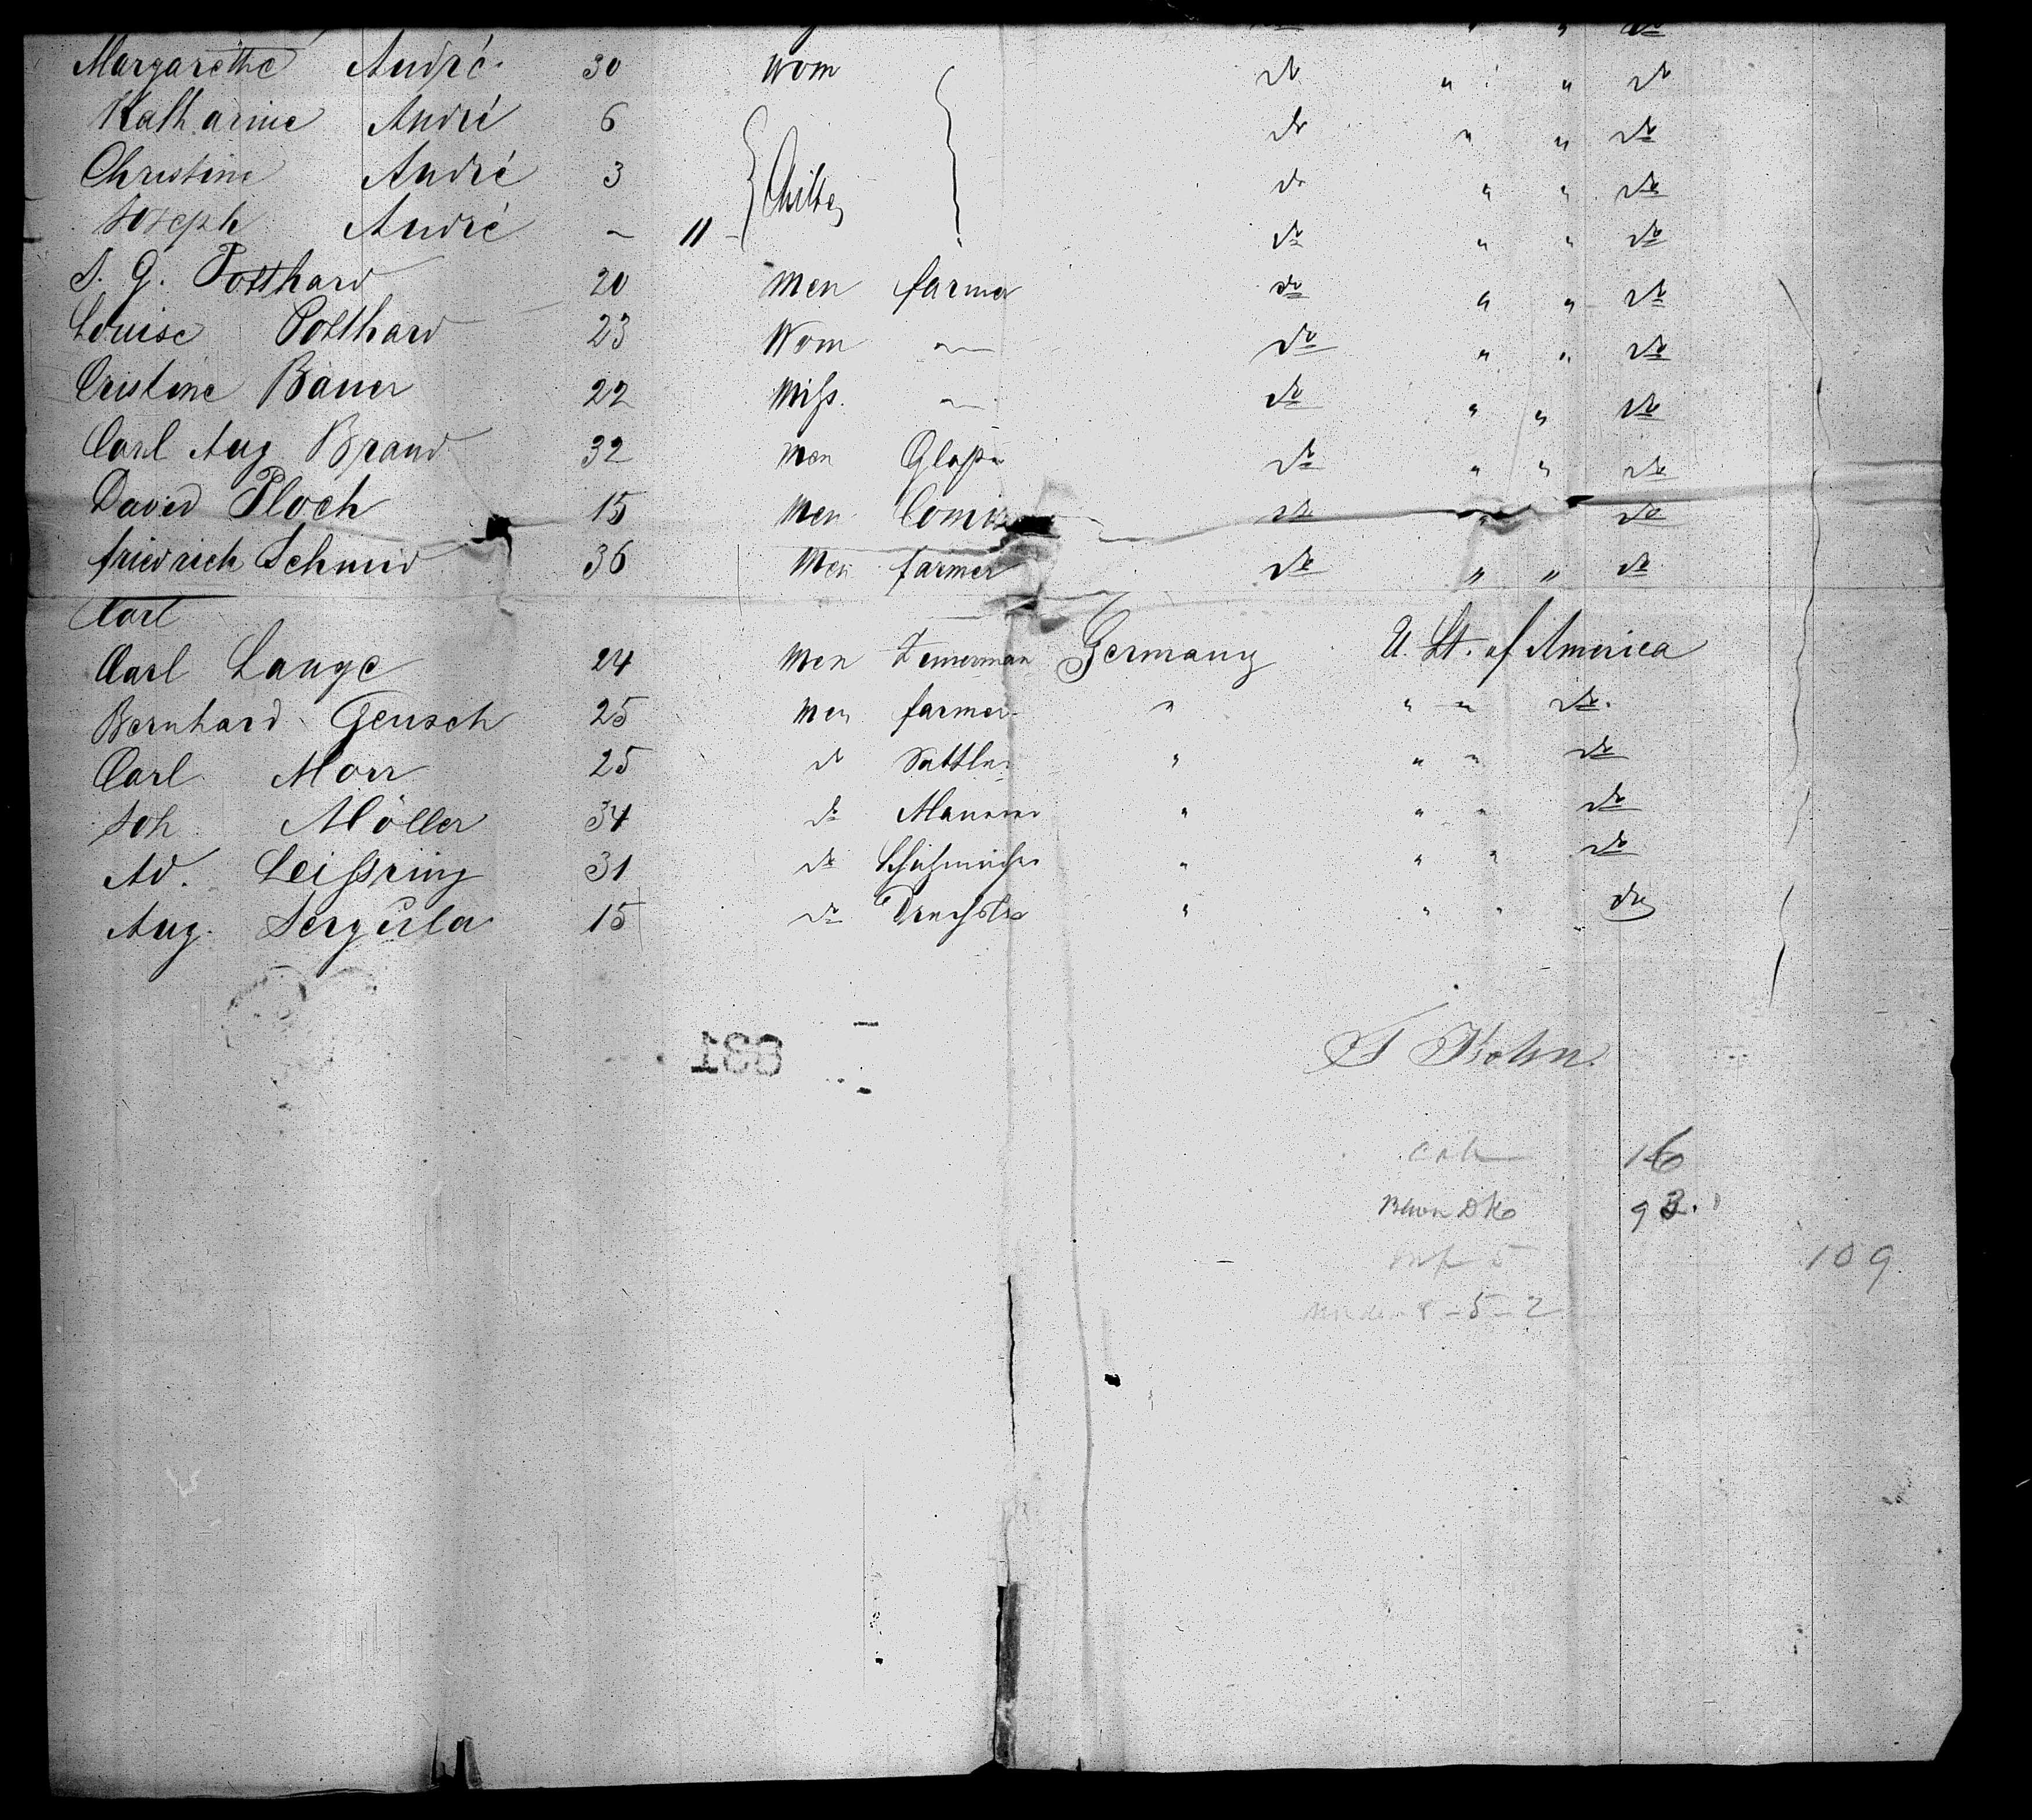 do " " do
Margarethe André 30 Wom do " " do
Katharine André 6 do " " do
Christine André 3 Childs do " " do
Joseph André – 11 do " " do
S. G. Potthard 20 Men farmer do " " do
Louise Potthard 23 Wom — do " " do
Cristine Bauer 22 Miss. — do " " do
Carl Aug Brand 32 Men do " " do
David Ploch 15 Men Comis do " do
friedrich Schmid 36 Men farmer do " " do
Carl
Carl Lange 24 Men Zimerman Germany U. St. of America
Bernhard Gensch 25 Men farmer " " " do.
Carl Morr 25 do Sattler " " " do
Joh Möller 34 do Maurer " " " do
Ad. Leissring 31 do " " " do
Aug. Sergula 15 do Drechsler " " " do
F Kohn.
631
Cab 16
93.
109
5
8-5-2